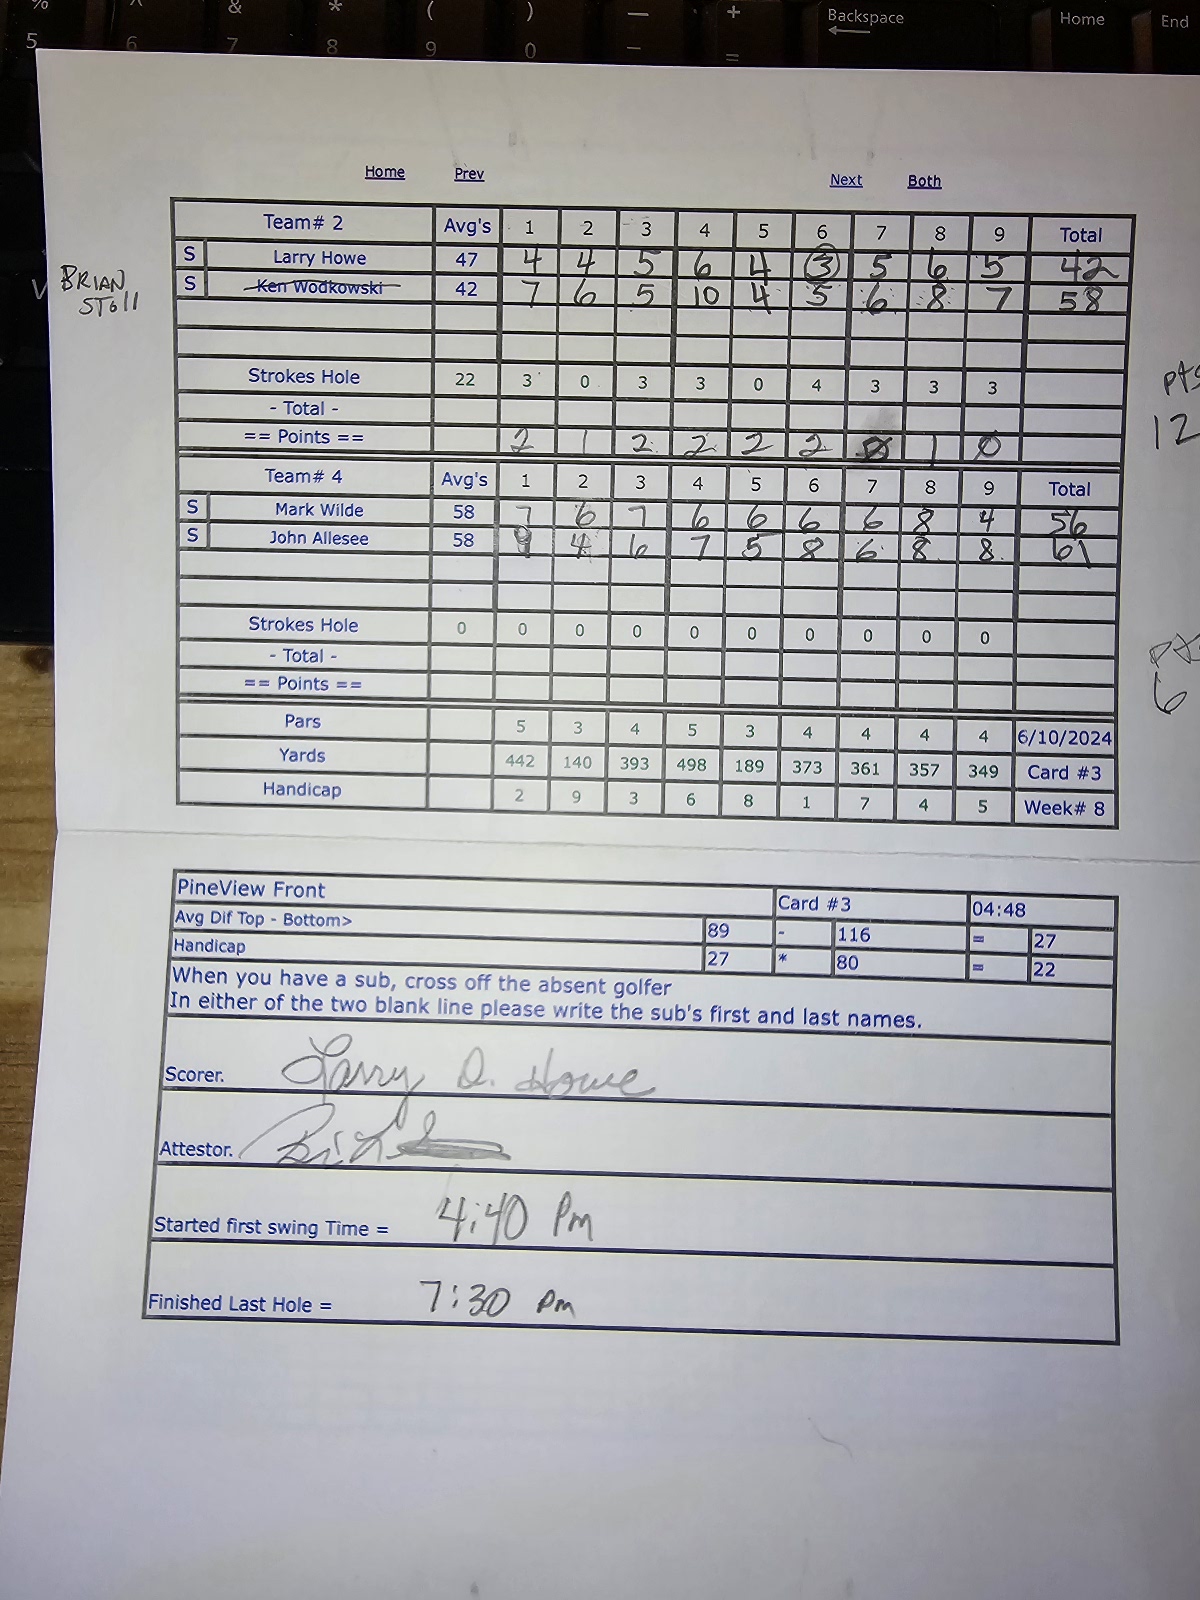 % ^ & * ( ) — + Backspace Home End
5 6 7 8 9 0 – =
Home Prev Next Both
Team# 2 Avg's 1 2 3 4 5 6 7 8 9 Total
S Larry Howe 47 4 4 5 6 4 3 5 6 5 42
BRIAN STOll S Ken Wodkowski 42 7 6 5 10 4 5 6 8 7 58
Strokes Hole 22 3 0 3 3 0 4 3 3 3
- Total -
pts
== Points == 2 1 2 2 2 2 0 1 0
12
Team# 4 Avg's 1 2 3 4 5 6 7 8 9 Total
S Mark Wilde 58 7 6 7 6 6 6 6 8 4 56
S John Allesee 58 9 4 6 7 5 8 6 8 8 61
Strokes Hole 0 0 0 0 0 0 0 0 0 0
- Total -
== Points ==
6
Pars 5 3 4 5 3 4 4 4 4 6/10/2024
Yards 442 140 393 498 189 373 361 357 349 Card #3
Handicap 2 9 3 6 8 1 7 4 5 Week# 8
PineView Front Card #3 04:48
Avg Dif Top - Bottom> 89 - 116 = 27
Handicap 27 * 80 = 22
When you have a sub, cross off the absent golfer
In either of the two blank line please write the sub's first and last names.
Scorer. Larry D. Howe
Attestor.
Started first swing Time = 4:40 Pm
Finished Last Hole = 7:30 pm